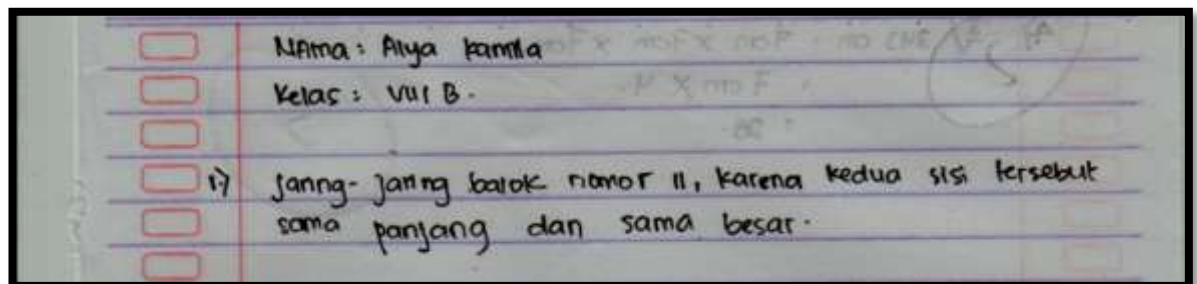 NAma : Alya kamila
Kelas : VIII B.
1.) Jaring-Jaring balok nomor II, karena kedua sisi tersebut
sama panjang dan sama besar.